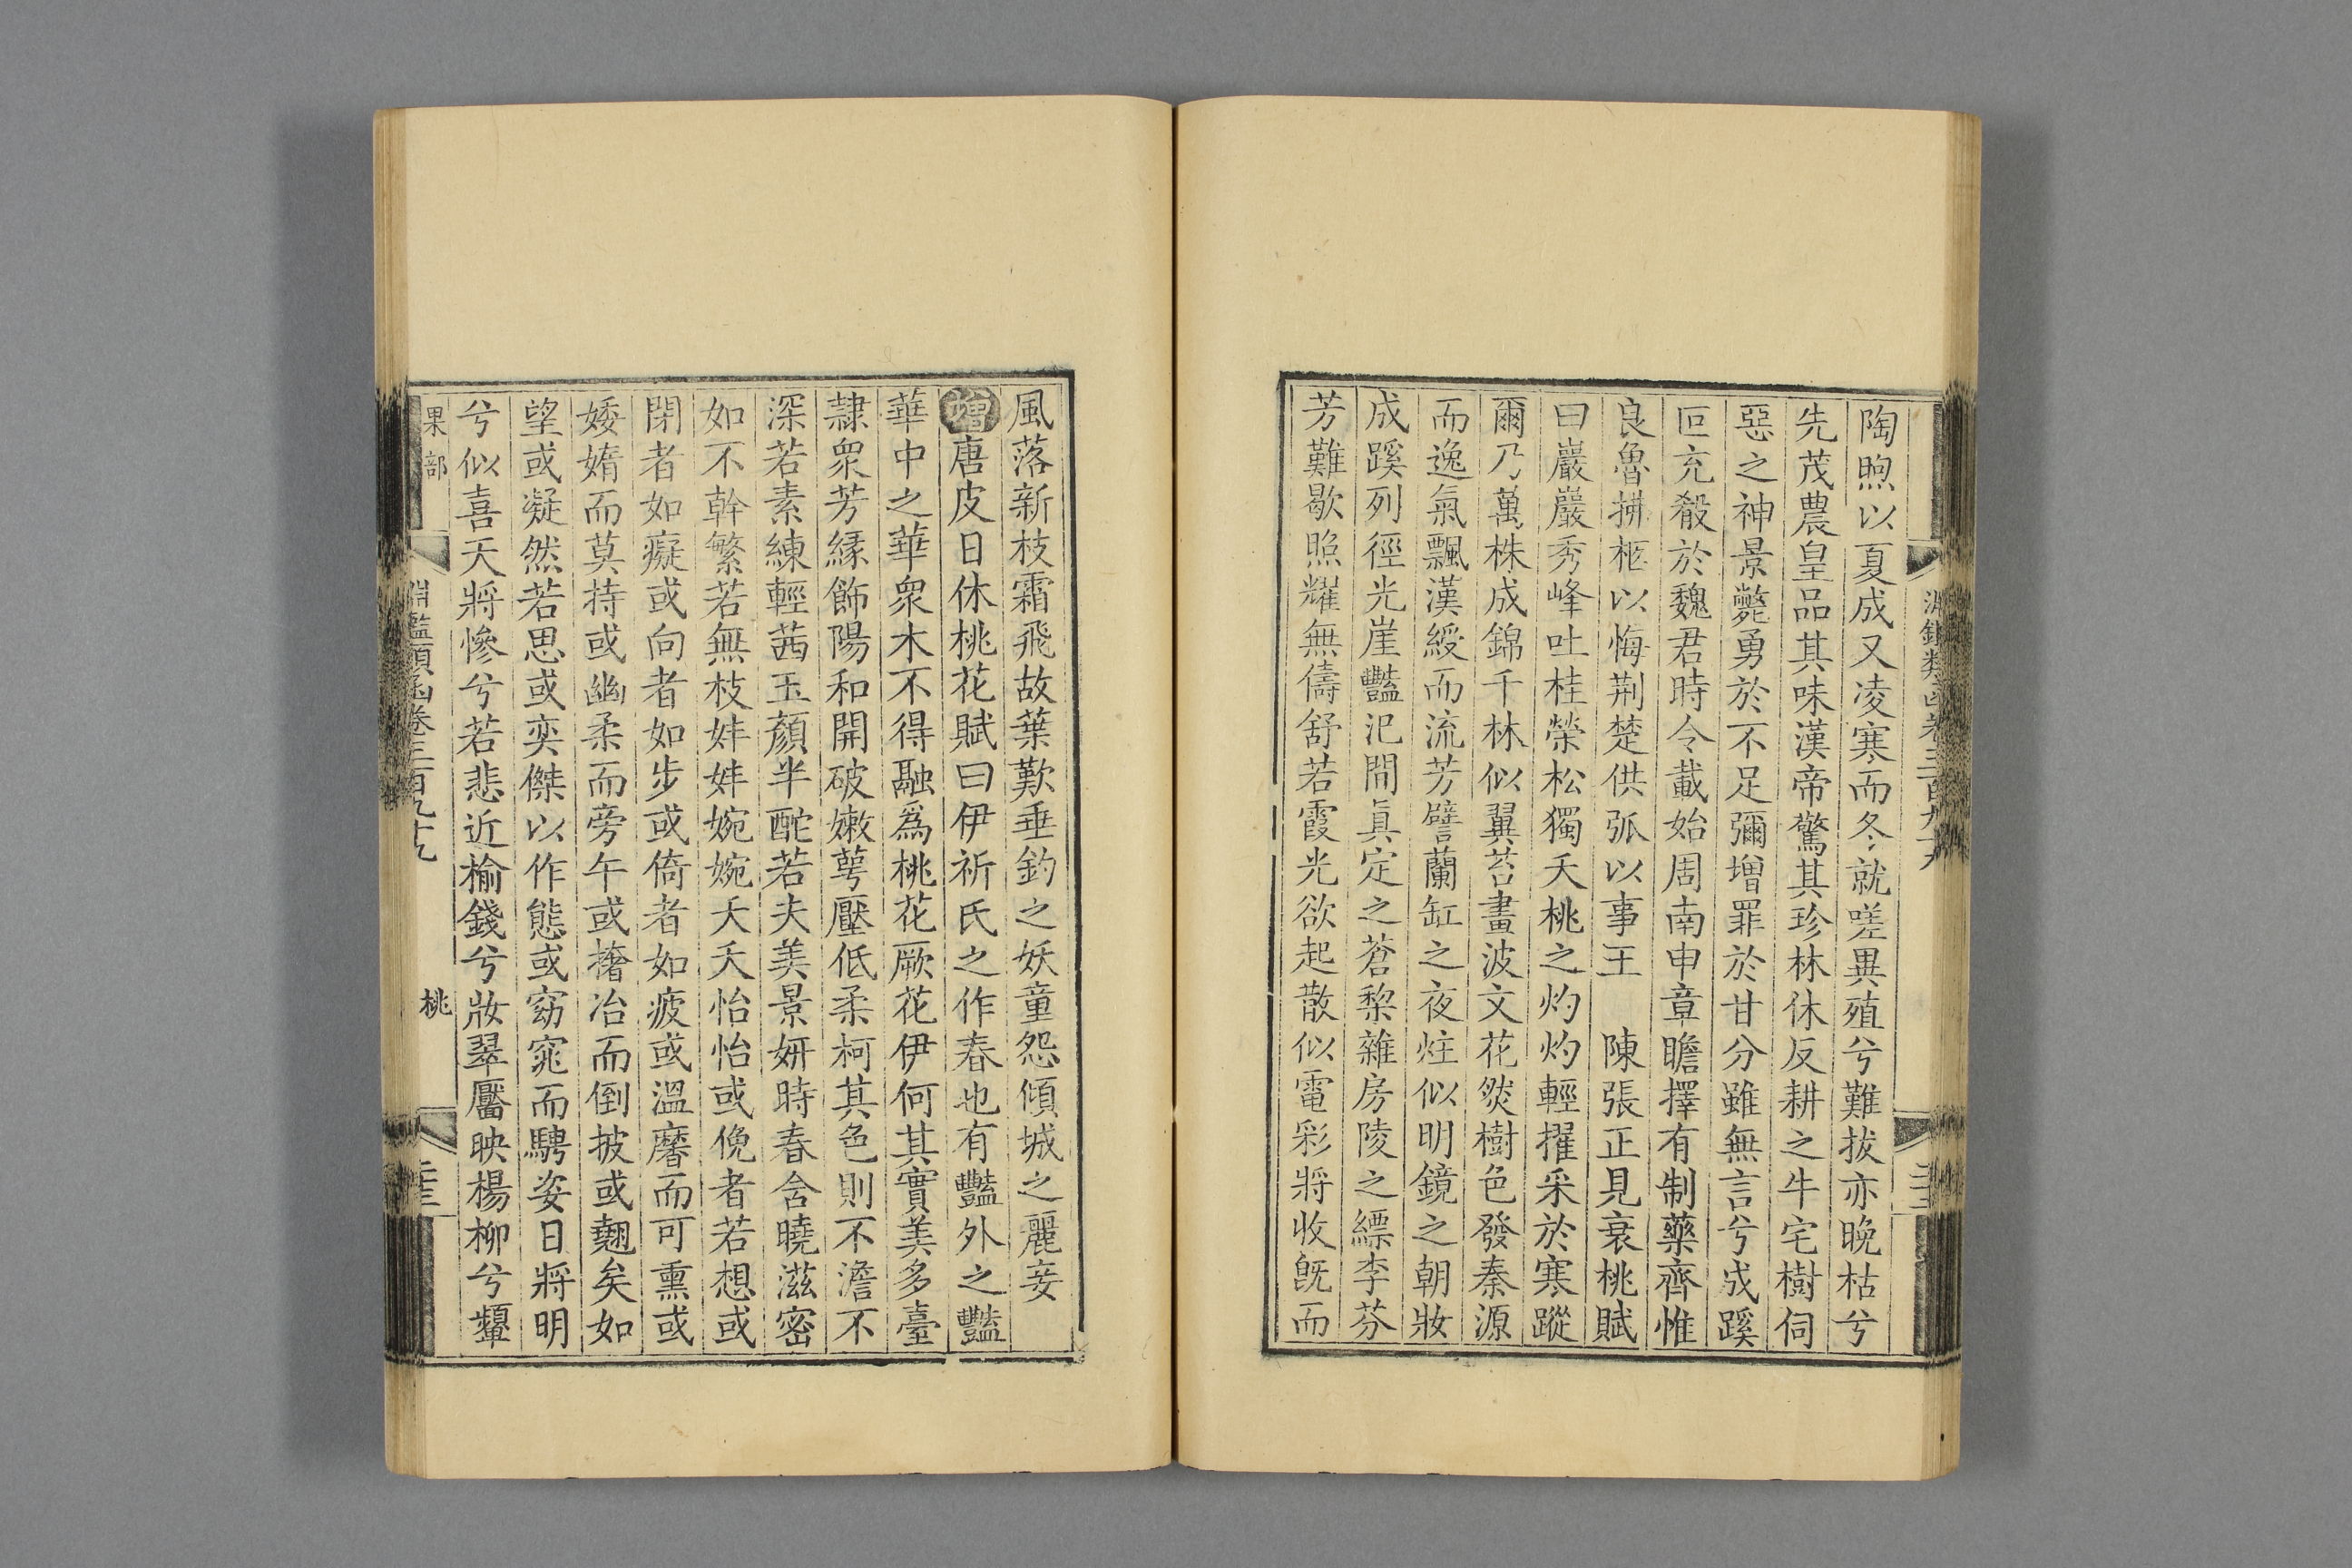 陶煦以夏成又凌寒而冬就嗟異殖兮難拔亦晚枯兮
先茂農皇品其味漢帝驚其珍林休反耕之牛宅樹伺
惡之神景斃勇於不足彌增罪於甘分雖無言兮成蹊
叵充殽於魏君時令載始周南申章瞻擇有制藥齊惟
良魯拂柩以悔荆楚供弧以事王　陳張正見衰桃賦
曰巖巖秀峰吐桂榮松獨夭桃之灼灼輕擢采於寒蹤
爾乃萬株成錦千林似翼苔畫波文花然樹色發秦源
而逸氣飄漢綬而流芳譬蘭缸之夜炷似明鏡之朝妝
成蹊列徑光崖豔汜間真定之蒼棃雜房陵之縹李芬
芳難歇照耀無儔舒若霞光欲起散似電彩將收旣而
風落新枝霜飛故葉歎垂釣之妖童怨傾城之麗妾
增唐皮日休桃花賦曰伊祈氏之作春也有豔外之豔
華中之華衆木不得融爲桃花厥花伊何其實美多臺
隸衆芳緣飾陽和開破嫩萼壓低柔柯其色則不澹不
深若素練輕茜玉顏半酡若夫美景妍時春含曉滋密
如不幹繁若無枝妦妦婉婉夭夭怡怡或俛者若想或
閉者如癡或向者如步或倚者如疲或溫黁而可熏或
婑媠而莫持或幽柔而旁午或撦冶而倒披或翹矣如
望或凝然若思或奕傑以作態或窈窕而騁姿日將明
兮似喜天將慘兮若悲近榆錢兮妝翠靨映楊柳兮顰
果部
淵鑑類函卷三百九十九
桃